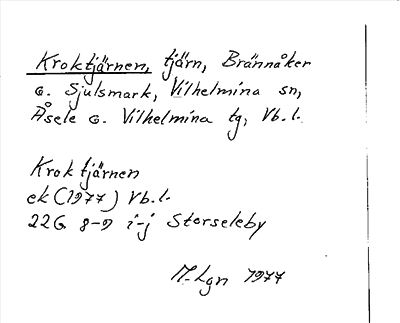 Kroktjärnen, tjärn, Brännåker
o. Sjulsmark, Vilhelmina sn,
Åsele o. Vilhelmina tg, Vb.l.
Kroktjärnen
ek (1977) Vb.l.
22G 8-9 i-j Storseleby
M-Lgn 1977